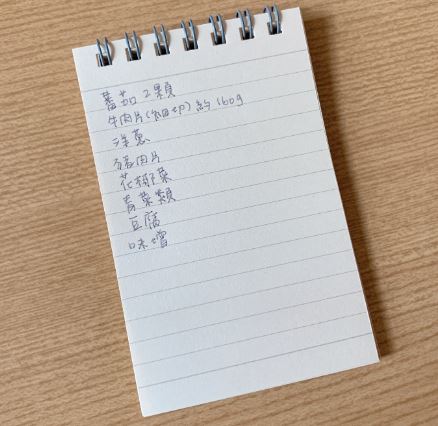 蕃茄2顆
牛肉片(細切)約160g
洋蔥
豬肉片
花椰菜
青菜類
豆腐
味噌